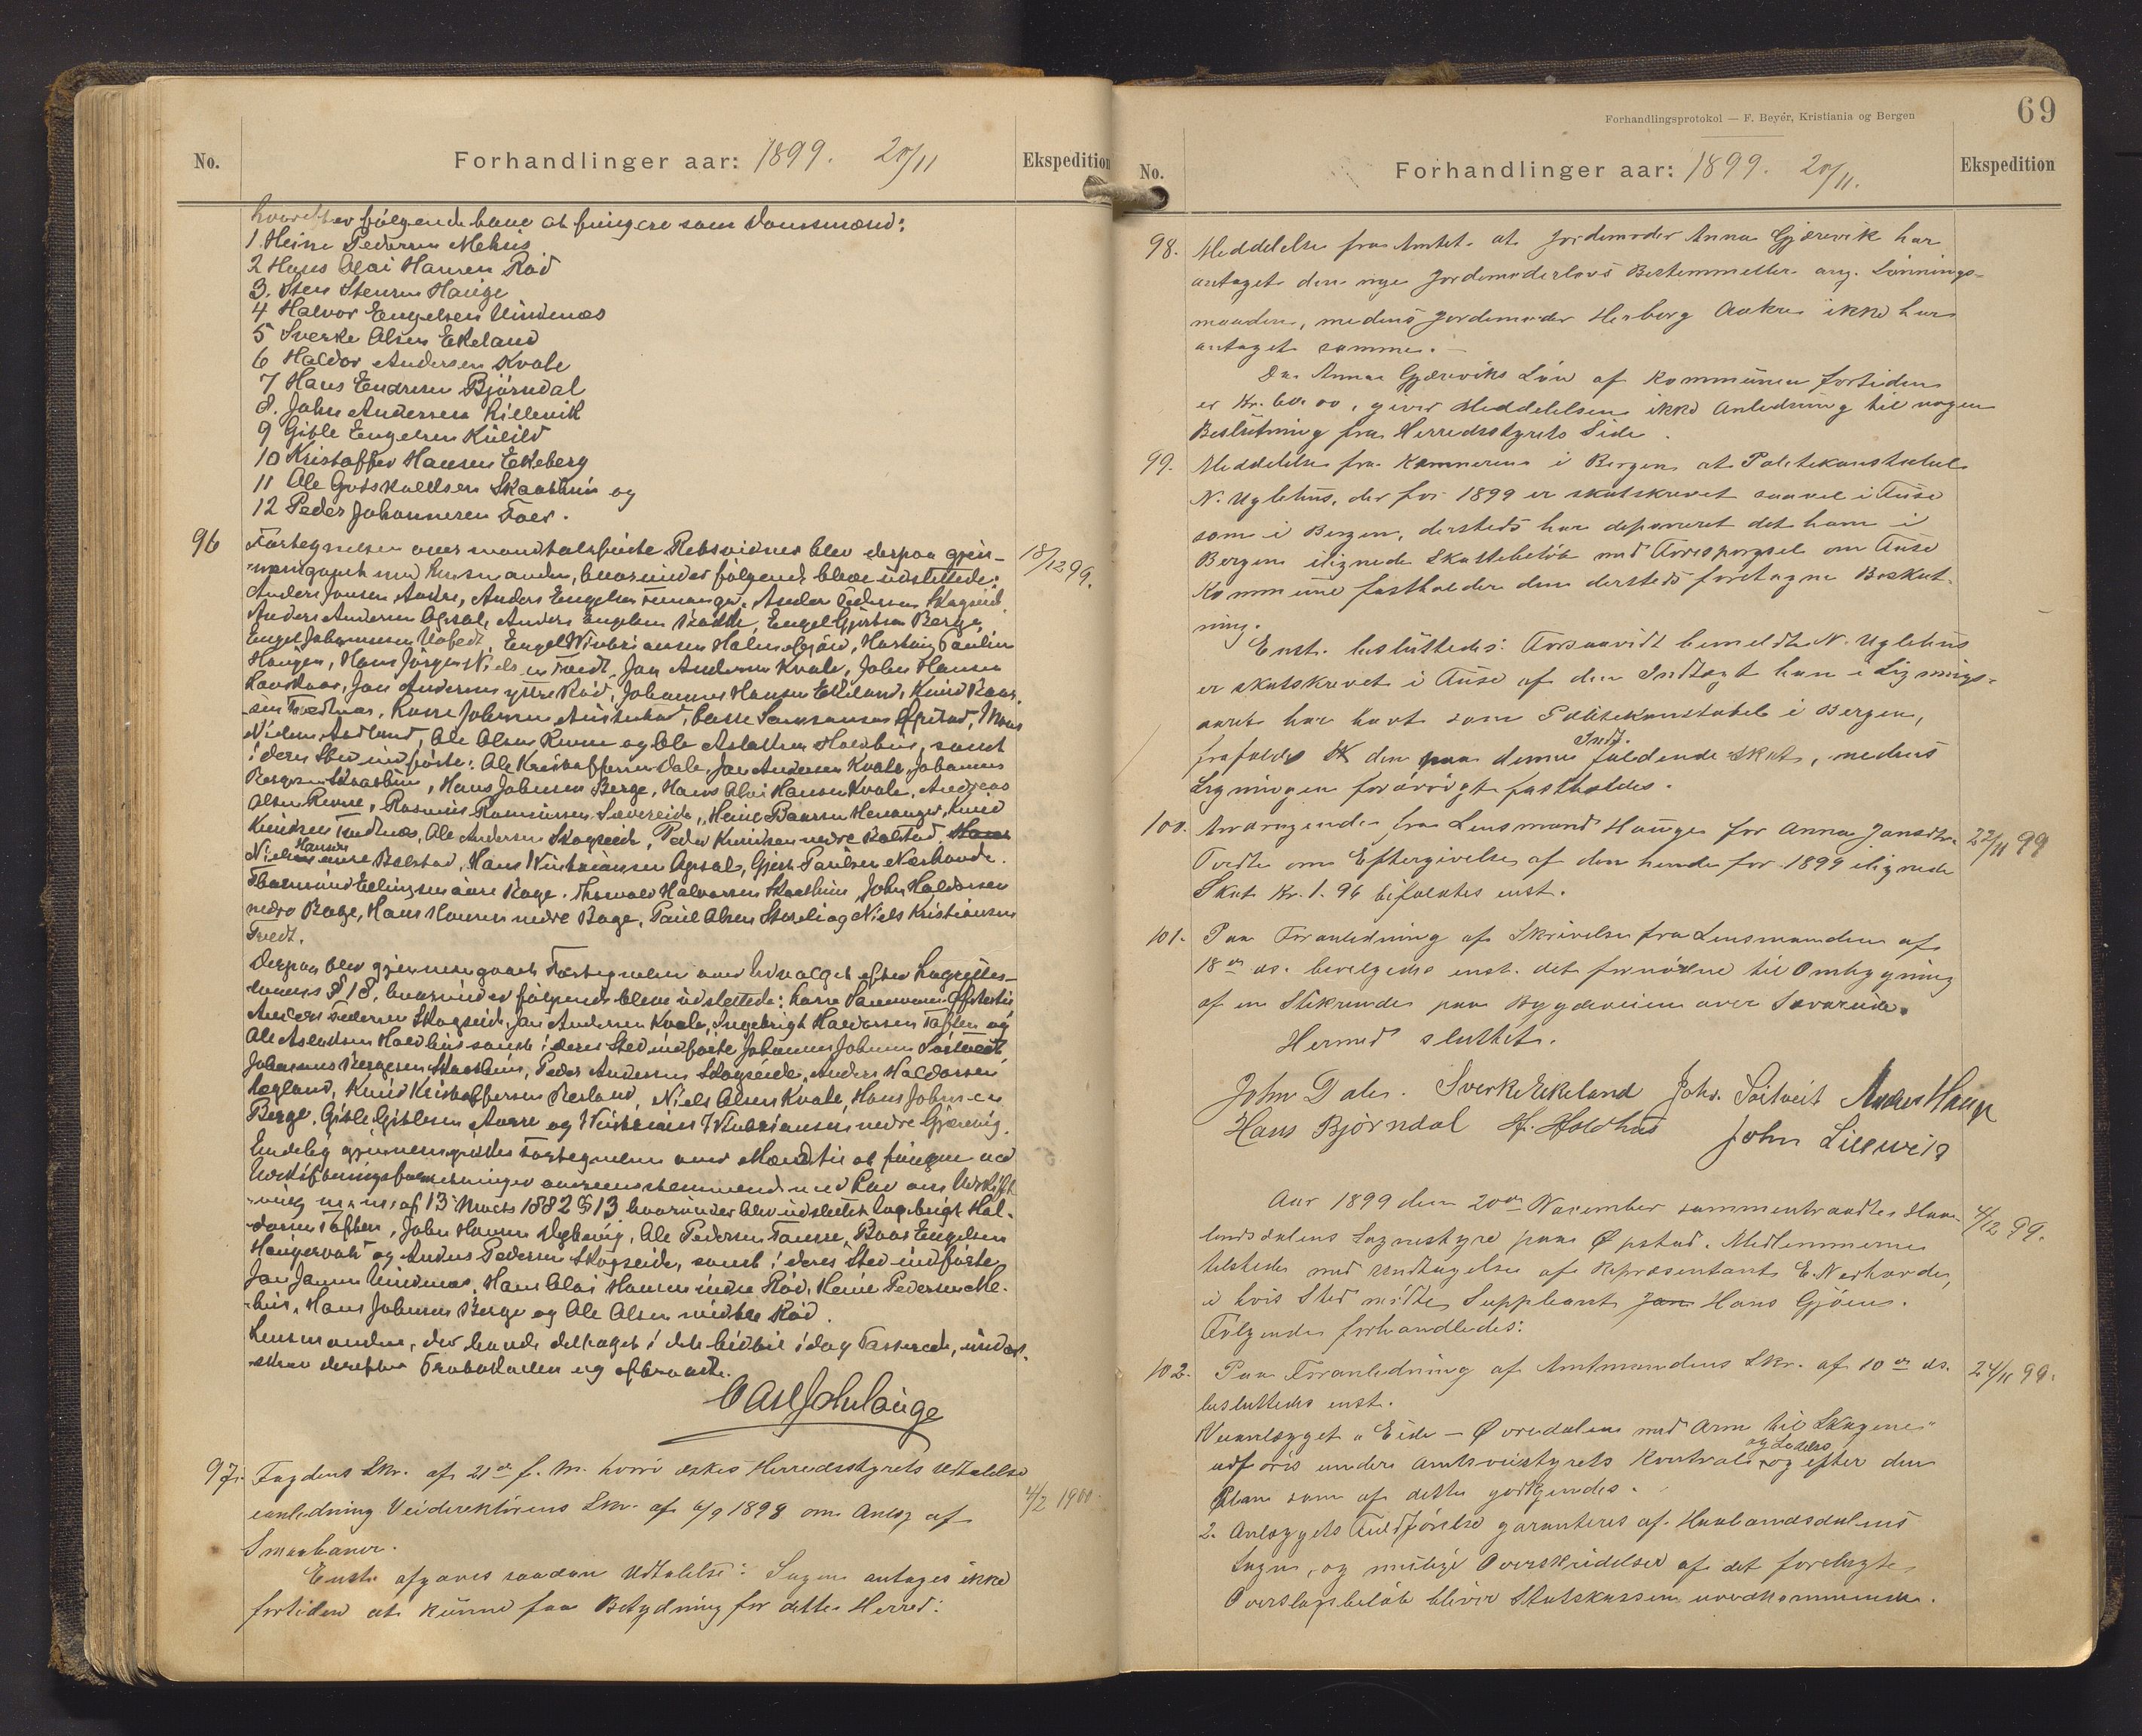 No.
Forhandlinger aar: 1899. 20/11
Ekspedition
hvorefter følgende have at fungere som Domsmænd:
1. Heine Pedersen Mehus
2 Hans Olai Hansen Rød
3. Sten Stensen Hauge
4 Halvor Engelsen Vindenes
5 Sverke Olsen Ekeland
6 Haldor Andersen Kvale
7 Hans Endresen Bjørndal
8. John Andersen Lillevik
9 Gitle Engelsen Kulild
10 Kristoffer Hansen Ekeberg
11 Ole Godskalksen Skaathun og
12 Peder Johannesen Foer.
96 Fortegnelsen over mandtalsførte Retsvidner blev derpaa gjen-
18/12 99.
nemgaaet med Lensmanden, hvorunder følgende bleve udslettede:
Anders Jonsen Aarre, Anders Engelsen Henanger, Anders Pedersen Skogseid,
Anders Andersen Opsal, Anders Engelsen, Engel Gjertsen Berge,
Engel Johannesen, Engel Vinbriansen Holmefjord, Hartvig Paulin
Haugen, Hans Jørgen Nielsen Tvedt, Jan Andersen Kvale, John Hansen
Havskor, Jan Andersen ytre Rød, Johannes Hansen Ekeland, Knud Baar-
sen, Lasse Johnsen, Lasse Samsonsen Øpstad, Mons
Nielsen Aadland, Ole Olsen Revne og Ole Aslaksen Holdhus, samt
i deres Sted indførte: Ole Kristoffersen Dale, Jan Andersen Kvale, Johannes
Børgesen Skaathun, Hans Johnsen Berge, Hans Olai Hansen Kvale, Andreas
Olsen Revne, Rasmus Rasmussen Sævereide, Heine Baarsen Henanger, Knud
Knudsen Tundtnæs, Ole Andersen Skogseide, Peder Knudsen nedre Bolstad, Hans
Hansen
Nielsen øvre Bolstad, Hans Vinbriansen Opsal, Gjert Paulsen Nerhovde.
Thormund Ellingsen øvre Bage. Thorvald Halvorsen Skaathun, John Haldorsen
nedre Bage, Hans Hansen nedre Bage, Paul Olsen Storli og Niels Kristiansen
Tvedt.
Derpaa blev gjennemgaaet Fortegnelsen over Udvalget efter Lagrettes-
lovens § 18, hvorunder følgende bleve udslettede: Lasse Samsonsen Øpstad
Anders Pedersen Skogseid, Jan Andersen Kvale, Ingebrigt Haldorsen Toften og
Ole Aslaksen Holdhus samt i deres Sted indførte Johannes Johnsen Søitveit
Johannes Børgesen Skaathun, Peder Andersen Skogseide, Anders Haldorsen
Legland, Knud Kristoffersen, Niels Olsen Kvale, Hans Johnsen
Berge, Gitle Gitlesen Aarre og Vinbrian Vinbriansen nedre Gjærevig.
Endelig gjennemgikkes Fortegnelsen over Mænd til at fungere ved
Udskiftningsforretninger overensstemmende med Lov om Udskift-
ning m. m. af 13 Marts 1882 § 13 hvorunder blev udslettet Ingebrigt Hal-
dorsen Toften, John Hansen, Ole Pedersen Tausse, Baar Engelsen
Haugervold og Anders Pedersen Skogseide, samt i deres Sted indførte
Jan Jansen Vindenes, Hans Olai Hansen indre Rød, Heine Pedersen Me-
hus, Hans Johnsen Berge og Ole Olsen midtre Rød.
Lensmanden, der havde deltaget i det hidtil i dag Passerede, under-
skrev derefter Protokollen og aftraadte.
Carl John Lange
97. Fogdens Skr. af 21de f. M. hvori æskes Herredsstyrets Udtalelse
4/2 1900.
i anledning Veidirektørens Skr. af 6/9 1898 om Anlæg af
Smaabaner.
Enst. afgaves saadan Udtalelse: Sagen antages ikke
fortiden at kunne faa Betydning for dette Herred.
Forhandlingsprotokol — F. Beyér, Kristiania og Bergen
69
No.
Forhandlinger aar: 1899. 20/11.
Ekspedition
98. Meddelelse fra Amtet at Jordemoder Anna Gjærevik har
antaget den nye Jordemoderlovs Bestemmelser ang. Lønnings-
maaden, medens Jordemoder Herborg Aakre ikke har
antaget samme. —
Da Anna Gjæreviks Løn af Kommunen fortiden
er Kr. 60.00, giver Meddelelsen ikke Anledning til nogen
Beslutning fra Herredsstyrets Side.
99. Meddelelse fra Kæmneren i Bergen at Politikonstabel
N. Uglehus, der for 1899 er skatskrevet saavel i Fuse
som i Bergen, dersteds har deponeret det ham i
Bergen ilignede Skattebeløb med Forespørgsel om Fuse
Kommune fastholder den dersteds foretagne Beskat-
ning.
Enst. besluttedes: Forsaavidt bemeldte N. Uglehus
er skatskrevet i Fuse af den Indtægt han i Lignings-
aaret har havt som Politikonstabel i Bergen,
Indt.
frafaldes den paa denne faldende Skat, medens
Ligningen forøvrigt fastholdes.
100. Andragende fra Lensmand Hauge for Anna Jansdtr.
22/11 99
Tvedte om Eftergivelse af den hende for 1899 ilignede
Skat Kr. 1.96 bifaldtes enst.
101. Paa Foranledning af Skrivelse fra Lensmanden af
18de ds. bevilgedes enst. det fornødne til Ombygning
af en Stikrende paa Bygdeveien over Sævareide.
Hermed sluttet.
John Dale. Sverke Ekeland Johs. Søitveit Anders Hauge
Hans Bjørndal H. Holdhus John Lillevik
Aar 1899 den 20de November sammentraadte Haa-
4/12 99.
landsdalens Sognestyre paa Øpstad. Medlemmerne
tilstede med Undtagelse af Repræsentant E. Nerhovde,
i hvis Sted mødte Suppleant Jan Hans Gjøen.
Følgende forhandledes:
102. Paa Foranledning af Amtmandens Skr. af 10de ds.
24/11 99.
besluttedes enst.
Veianlægget "Eide — Øvredalen med Arm til Skogene"
og Ledelse
udføres under Amtsveistyrets Kontrol og efter den
Plan som af dette godkjendes.
2. Anlæggets Fuldførelse garanteres af Haalandsdalens
Sogn, og mulige Overskridelser af det forelagte
Overslagsbeløb bliver Statskassen uvedkommende.